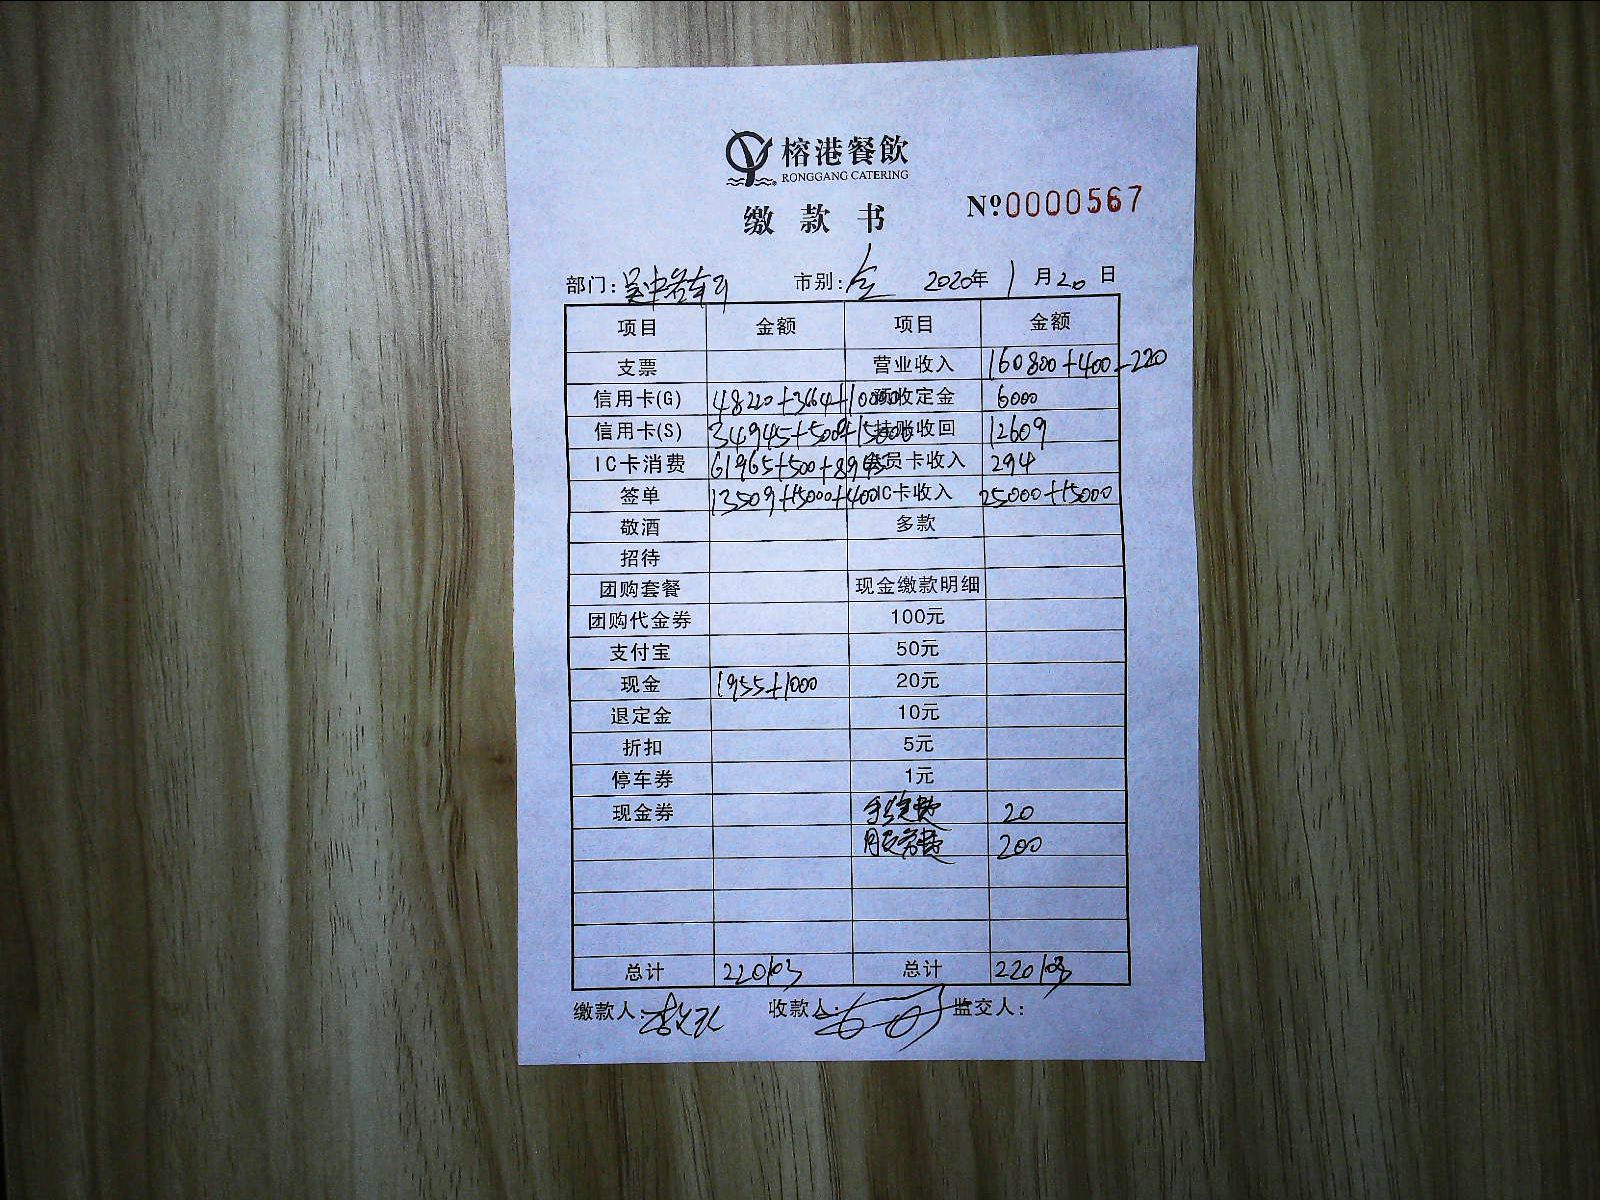 榕港餐飲
RONGGANG CATERING
缴款书 №0000567
部门: 市别:全 2020年1月20日
项目 金额 项目 金额
支票 营业收入 160800+400-220
信用卡(G) 48220+364+10000 预收定金 6000
信用卡(S) 34945+500+15000 挂账收回 12609
IC卡消费 61965+500+8945 会员卡收入 294
签单 13509+15000+400 IC卡收入 25000+15000
敬酒 多款
招待
团购套餐 现金缴款明细
团购代金券 100元
支付宝 50元
现金 1955+1000 20元
退定金 10元
折扣 5元
停车券 1元
现金券 手续费 20
服务费 200
总计 220103 总计 220103
缴款人: 收款人: 监交人: